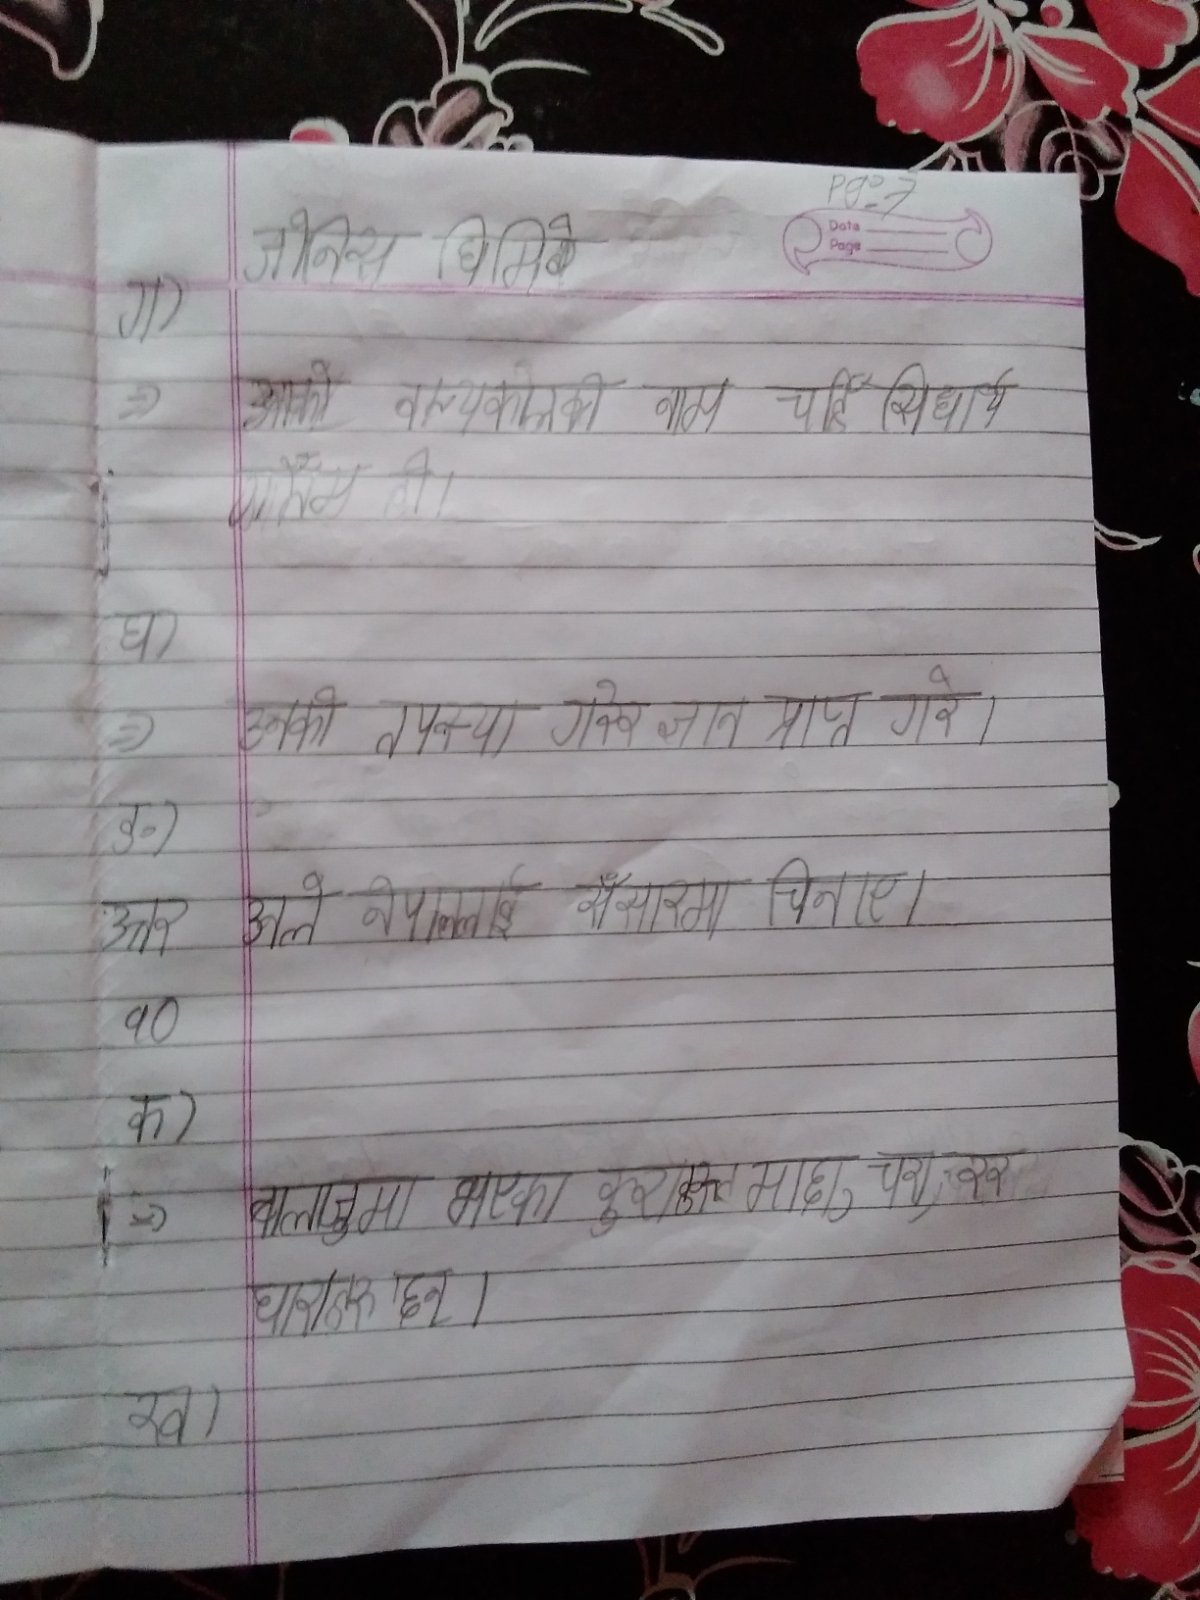 pg:-7
Date
Page
जोनिस घिमिरे
ग)
⇒ उसको वाल्यकालको नाम चाहिँ सिधार्थ
गौतम हो।
घ)
⇒ उनको तपस्या गरेर ज्ञान प्राप्त गरे।
ङ)
उत्तर उनले नेपाललाई सँसारमा चिनाए।
१०
क)
⇒ वालाजुमा भएका कुराहरु माछा, चरा,
धाराहरु छन्।
ख)